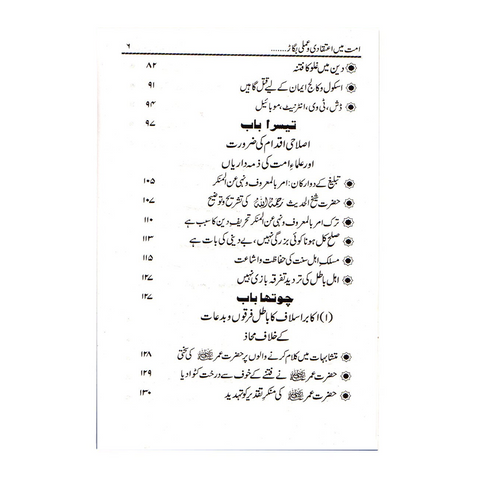 امت میں اعتقادی و عملی بگاڑ....... ۶
دین میں غلو کا فتنہ ۸۲
اسکول و کالج ایمان کے لیے قتل گاہیں ۹۱
ڈش، ٹی وی، انٹرنیٹ، موبائیل ۹۴
تیسرا باب ۹۷
اصلاحی اقدام کی ضرورت
اور علماءِ امت کی ذمہ داریاں
تبلیغ کے دو ارکان: امر بالمعروف و نہی عن المنکر ۱۰۵
حضرت شیخ الحدیث رحمہ اللہ کی تشریح و توضیح ۱۰۷
ترک امر بالمعروف و نہی عن المنکر تحریف دین کا سبب ہے ۱۱۰
صلح کل ہونا کوئی بزرگی نہیں، بے دینی کی بات ہے ۱۱۳
مسلکِ اہل سنت کی حفاظت و اشاعت ۱۱۵
اہل باطل کی تردید تفرقہ بازی نہیں ۱۲۷
چوتھا باب ۱۲۷
(۱) اکابر اسلاف کا باطل فرقوں و بدعات
کے خلاف محاذ
متشابہات میں کلام کرنے والوں پر حضرت عمر کی سختی ۱۲۸
حضرت عمر نے فتنے کے خوف سے درخت کٹوا دیا ۱۲۹
حضرت عمر کی منکرِ تقدیر کو تہدید ۱۳۰